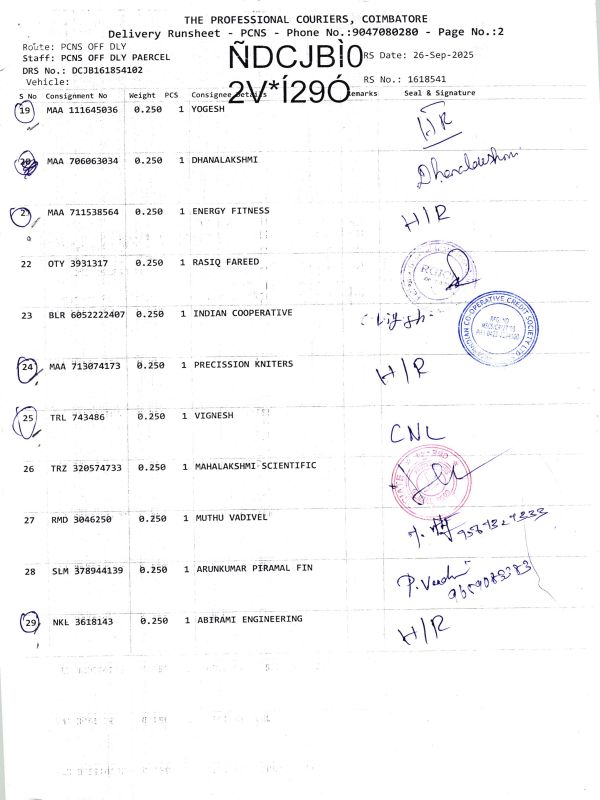 THE PROFESSIONAL COURIERS, COIMBATORE
Delivery Runsheet - PCNS - Phone No.:9047080280 - Page No.:2
Route: PCNS OFF DLY
Staff: PCNS OFF DLY PAERCEL RS Date: 26-Sep-2025
DRS No.: DCJB161854102
Vehicle: RS No.: 1618541
ÑDCJBÌ0
2V*Í29Ó
S No Consignment No Weight PCS Consignee Details Remarks Seal & Signature
19 MAA 111645036 0.250 1 YOGESH H/R
20 MAA 706063034 0.250 1 DHANALAKSHMI Dhanalakshmi
21 MAA 711538564 0.250 1 ENERGY FITNESS H/R
22 OTY 3931317 0.250 1 RASIQ FAREED
23 BLR 6052222407 0.250 1 INDIAN COOPERATIVE
24 MAA 713074173 0.250 1 PRECISSION KNITERS H/R
25 TRL 743486 0.250 1 VIGNESH CNL
26 TRZ 320574733 0.250 1 MAHALAKSHMI SCIENTIFIC
27 RMD 3046250 0.250 1 MUTHU VADIVEL
28 SLM 378944139 0.250 1 ARUNKUMAR PIRAMAL FIN
29 NKL 3618143 0.250 1 ABIRAMI ENGINEERING H/R